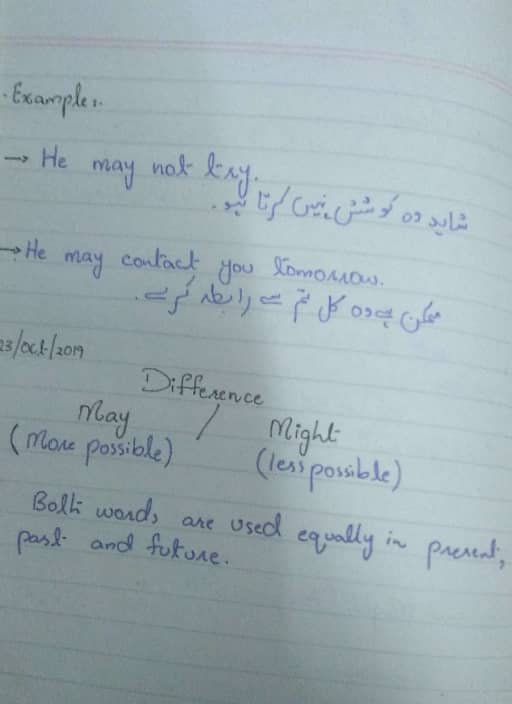 Example:.
→ He may not try.
شاید وہ کوشش نہیں کرتا ہو۔
→ He may contact you tomorrow.
ممکن ہے وہ کل تم سے رابطہ کرے۔
23/oct/2019
Difference
May / Might
(More possible) (less possible)
Both words are used equally in present,
past and future.